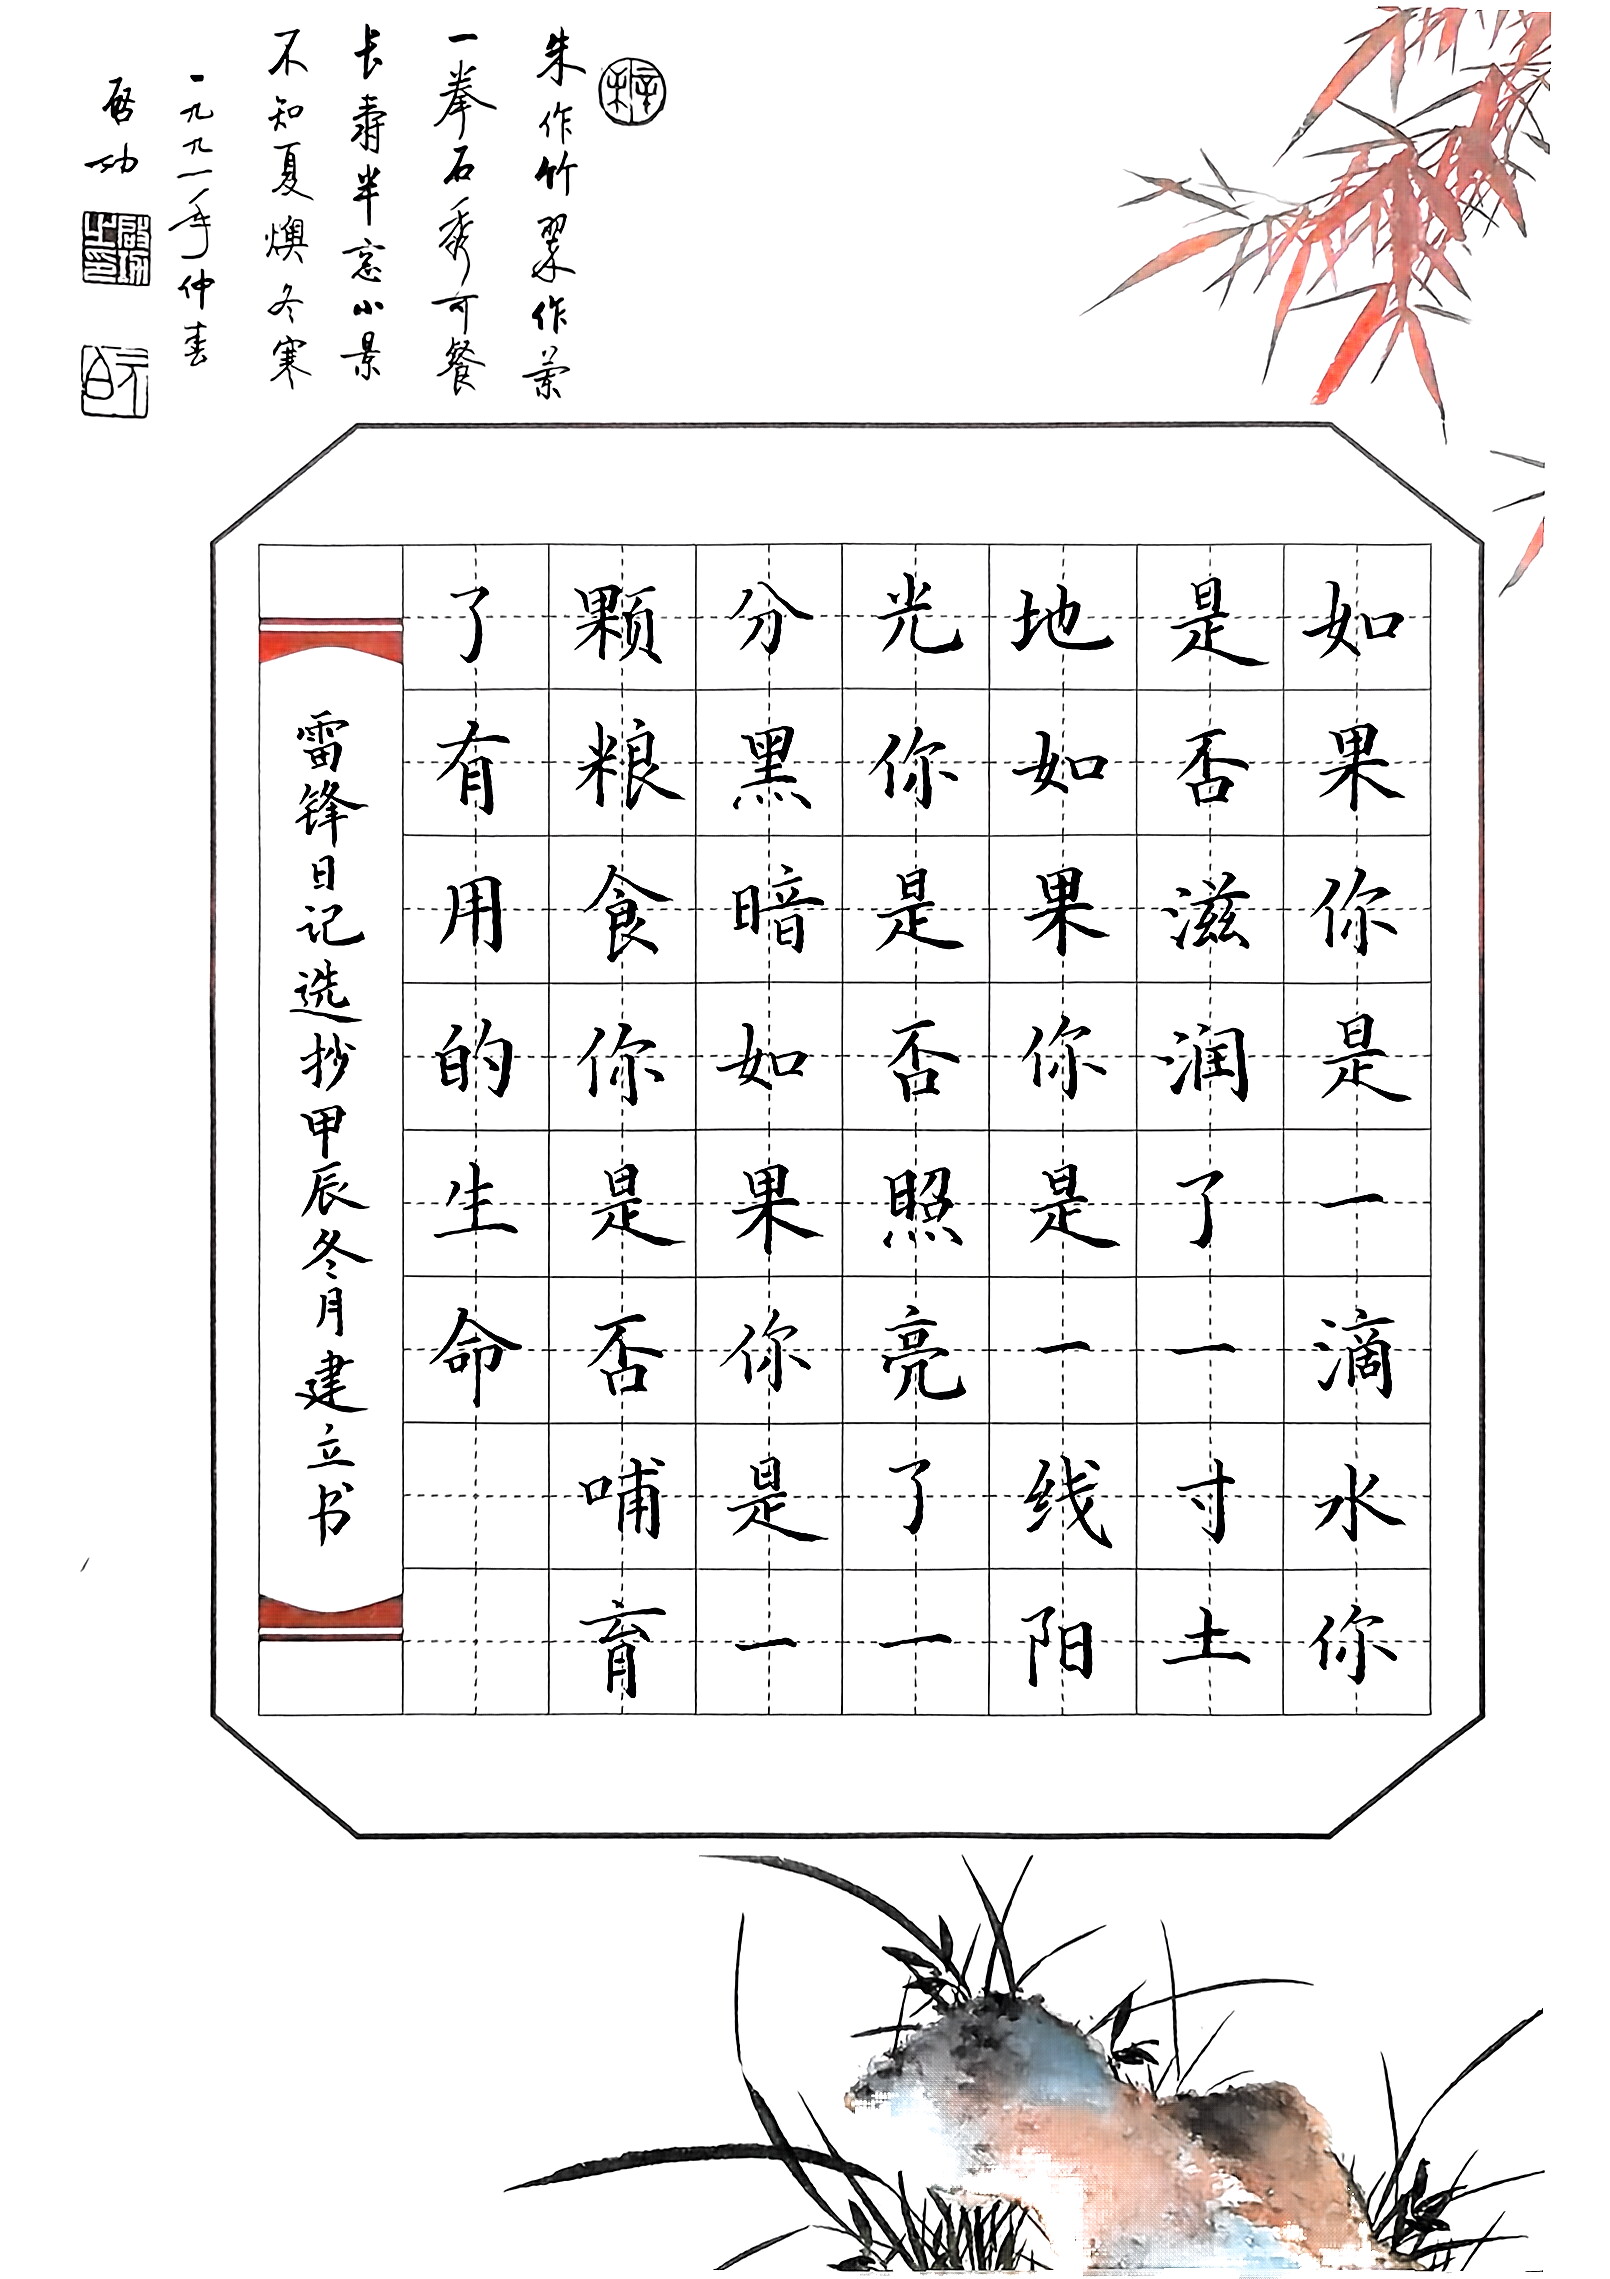 朱作竹翠作兰
一拳石秀可餐
长寿半忘小景
不知夏燠冬寒
一九九一年仲春
启功
如果你是一滴水你
是否滋润了一寸土
地如果你是一线阳
光你是否照亮了一
分黑暗如果你是一
颗粮食你是否哺育
了有用的生命
雷锋日记选抄甲辰冬月建立书